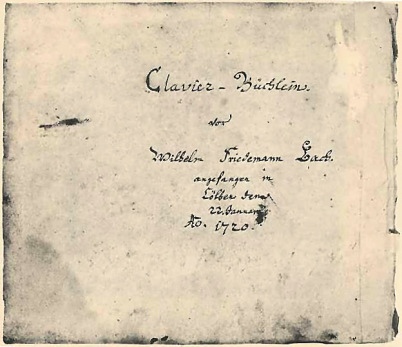 Clavier-Büchlein.
vor
Wilhelm Friedemann Bach.
angefangen in
Cöthen den
22. Januar
Ao. 1720.